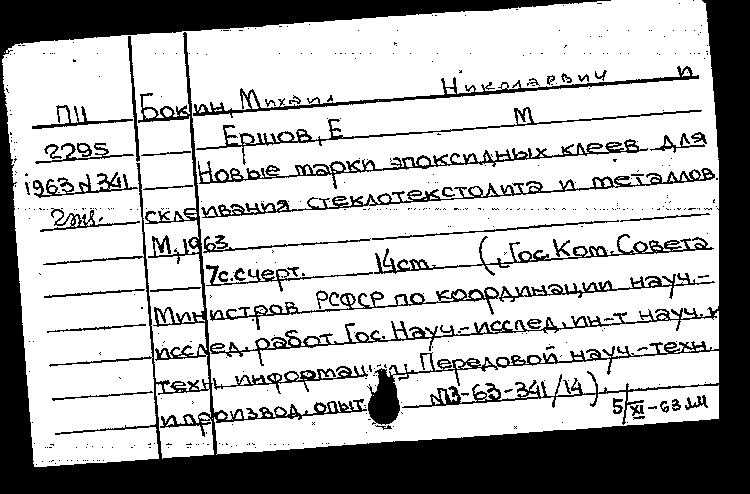 ПШ Бокин, Михаил Николаевич и
2295 Ершов, Е М
1963 N 341 Новые марки эпоксидных клеев для
2экз. склеивания стеклотекстолита и металлов.
М., 1963.
7с. с черт. 14 cm. (Гос. Ком. Совета
Министров РСФСР по координации науч.-
исслед. работ. Гос. Науч.-исслед. ин-т науч. и
техн. информации. Передовой науч.-техн.
и производ. опыт N13-63-341/14).
5/XI-63